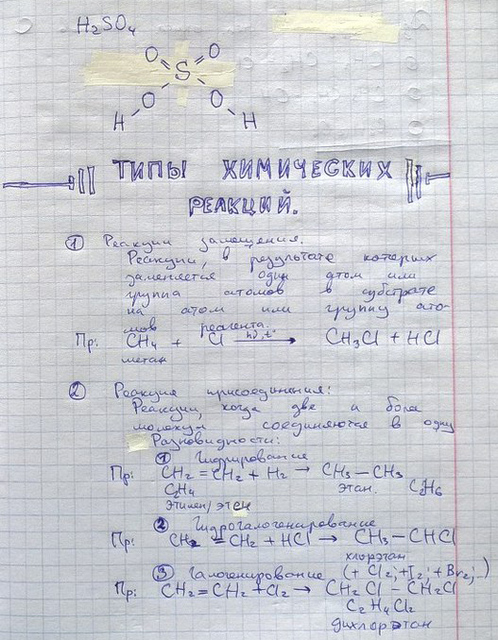 H₂SO₄
O O
S
O O
H H
ТИПЫ ХИМИЧЕСКИХ
РЕАКЦИЙ.
① Реакции замещения.
Реакции, в результате которых
заменяется один атом или
группа атомов в субстрате
на атом или группу ато-
мов реагента.
Пр: CH₄ + Cl hν, t° → CH₃Cl + HCl
метан
② Реакция присоединения:
Реакции, когда две и боле
молекул соединяются в одну
Разновидности:
① Гидрирование
Пр: CH₂ = CH₂ + H₂ → CH₃ – CH₃
C₂H₄ этан. C₂H₆
этилен/этен
② Гидрогалогенирование
Пр: CH₂ = CH₂ + HCl → CH₃ – CHCl
хлорэтан
③ Галогенирование (+ Cl₂; + I₂; + Br₂;..)
Пр: CH₂ = CH₂ + Cl₂ → CH₂Cl – CH₂Cl
C₂H₄Cl₂
дихлорэтан